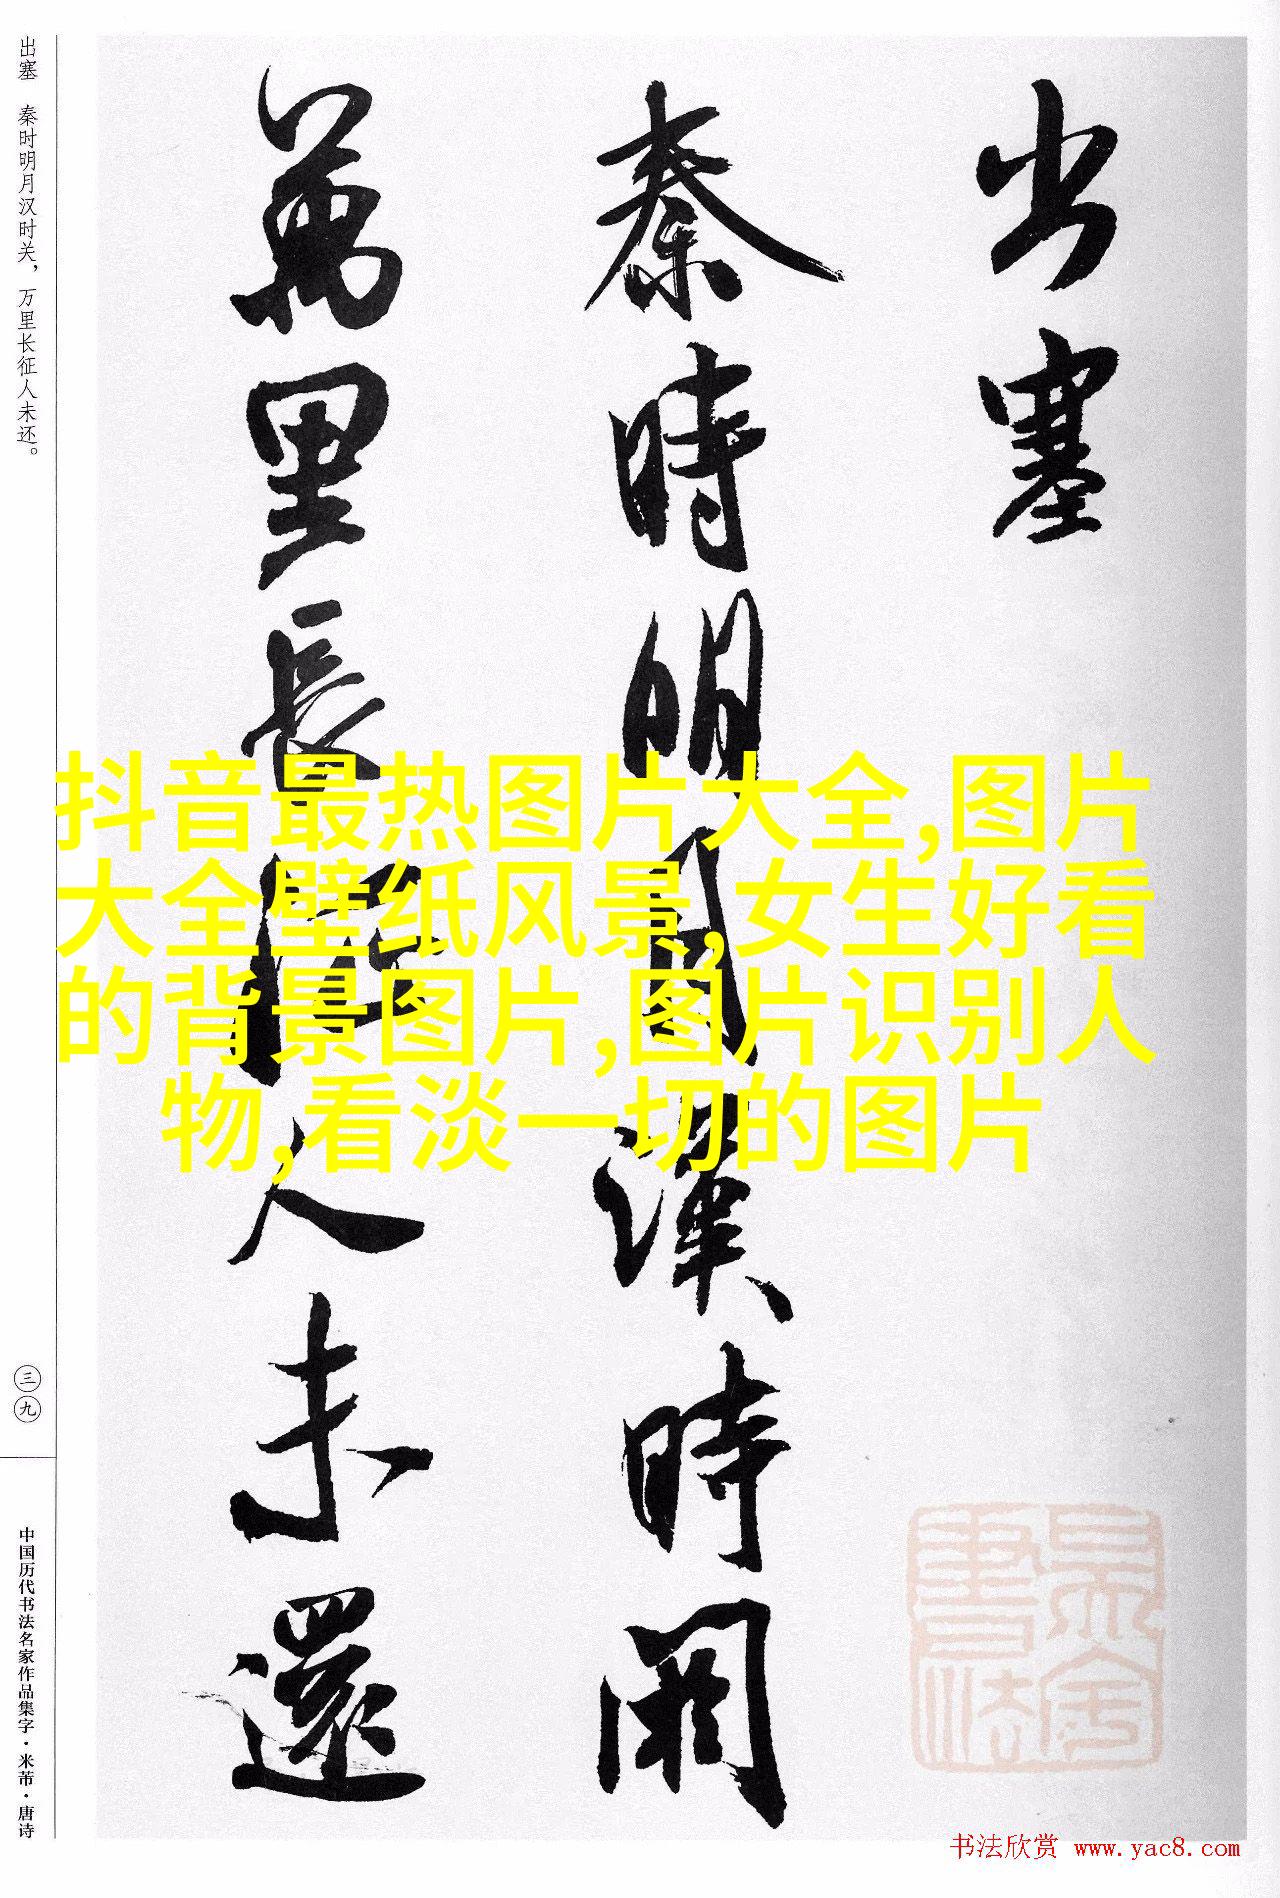 出塞
秦時明月漢時関
萬里長征人未還
抖音最热图片大全,图片
大全壁纸风景,女生好看
的背景图片,图片识别人
物,看淡一切的图片
出塞 秦时明月汉时关，万里长征人未还。
三九
中国历代书法名家作品集字·米芾·唐诗
书法欣赏 www.yac8.com